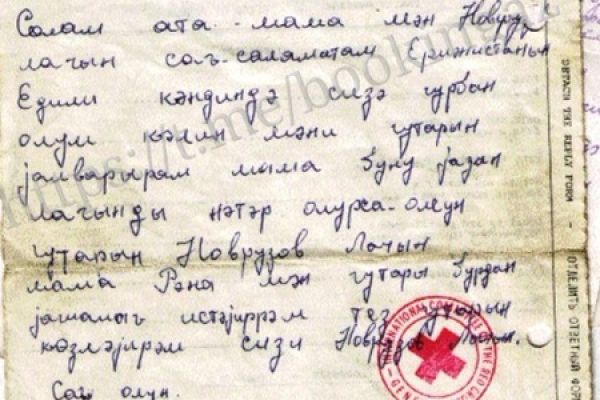 Салам ата-мама мән Новруз
лачын сағ-саламатам Ерижистанын
Едили кәндиндә сизә гурбан
олум кәлин мәни гутарын
јалварырам мама буну јазан
лачынды нәтәр олурса-олсун
гутарын Новрузов Лачын
мама Рәна мән гутары бурдан
јашамағ истәјиррәм тез гутарын
көзләјирәм сизи Новрузов Лачын.
Сағ олун.
INTERNATIONAL COMMITTEE OF THE RED CROSS
GENEVE
DETACH THE REPLY FORM -
ОТДЕЛИТЬ ОТВЕТНЫЙ
https://t.me/bookinaz